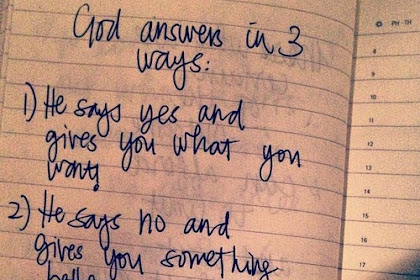 God answers in 3
ways:
1) He says yes and
gives you what you
want!
2) He says no and
gives you something
PH-TH
8
9
10
11
12
13
14
15
16
17